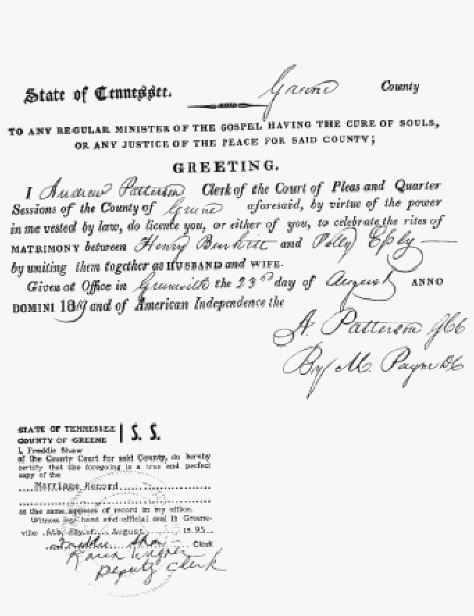 State of Tennessee. Greene County
TO ANY REGULAR MINISTER OF THE GOSPEL HAVING THE CURE OF SOULS,
OR ANY JUSTICE OF THE PEACE FOR SAID COUNTY;
GREETING.
I Andrew Patterson Clerk of the Court of Pleas and Quarter
Sessions of the County of Greene aforesaid, by virtue of the power
in me vested by law, do licence you, or either of you, to celebrate the rites of
MATRIMONY between Henry and Polly
by uniting them together as HUSBAND and WIFE.
Given at Office in Greenville the 23rd day of August ANNO
DOMINI 1819 and of American Independence the
A. Patterson
By M. Payne DC
STATE OF TENNESSEE
COUNTY OF GREENE S. S.
I, Freddie Shaw
of the County Court for said County, do hereby
certify that the foregoing is a true and perfect
copy of the
Marriage Record
as the same appears of record in my office.
Witness my hand and official seal at Greene-
ville day of August 1995
Clerk
Karen Wagner
Deputy Clerk